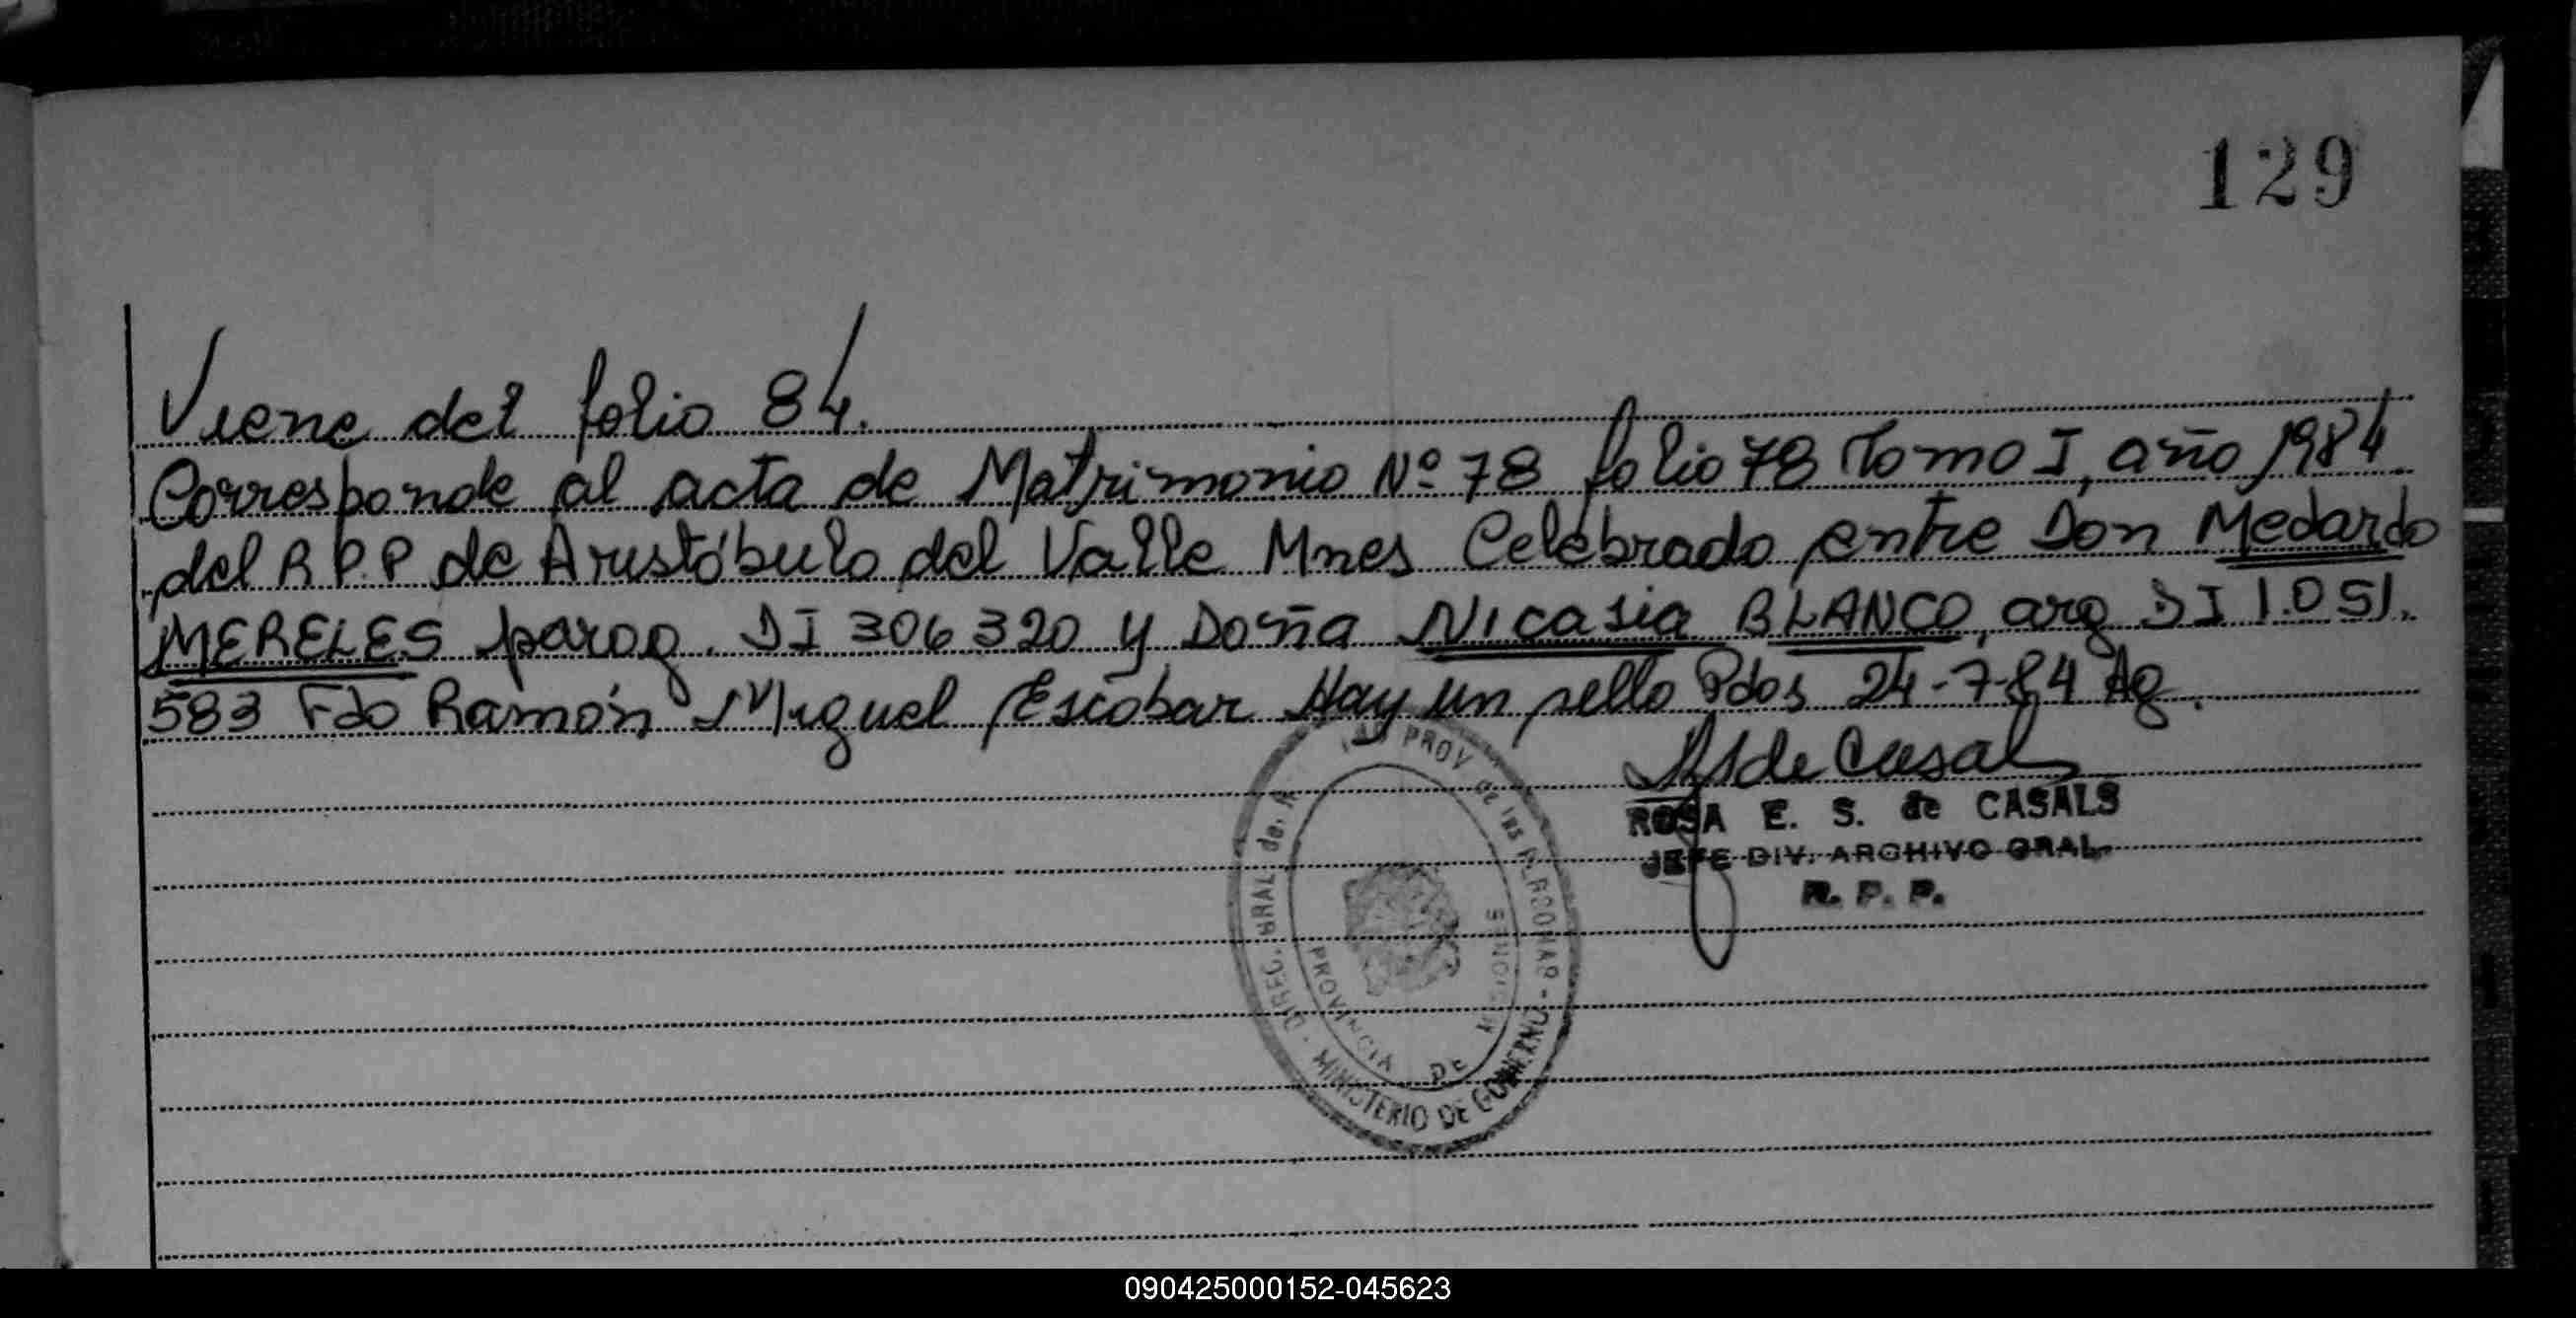 129
Viene del folio 84.
Corresponde al acta de Matrimonio Nº 78 folio 78 Tomo I, año 1984
del R P.P de Aristóbulo del Valle Mnes Celebrado entre Don Medardo
MERELES parag. DI 306320 y Doña Nicasia BLANCO, arg DI 1.051.
583 Fdo Ramón Miguel Escobar Hay un sello Pdos 24-7-84 Ag.
de Casals
ROSA E. S. de CASALS
JEFE DIV. ARCHIVO GRAL.
R. P. P.
DIREC. GRAL. de. PROV de las PERSONAS - MINISTERIO DE GOBIERNO
PROVINCIA DE MISIONES
090425000152-045623